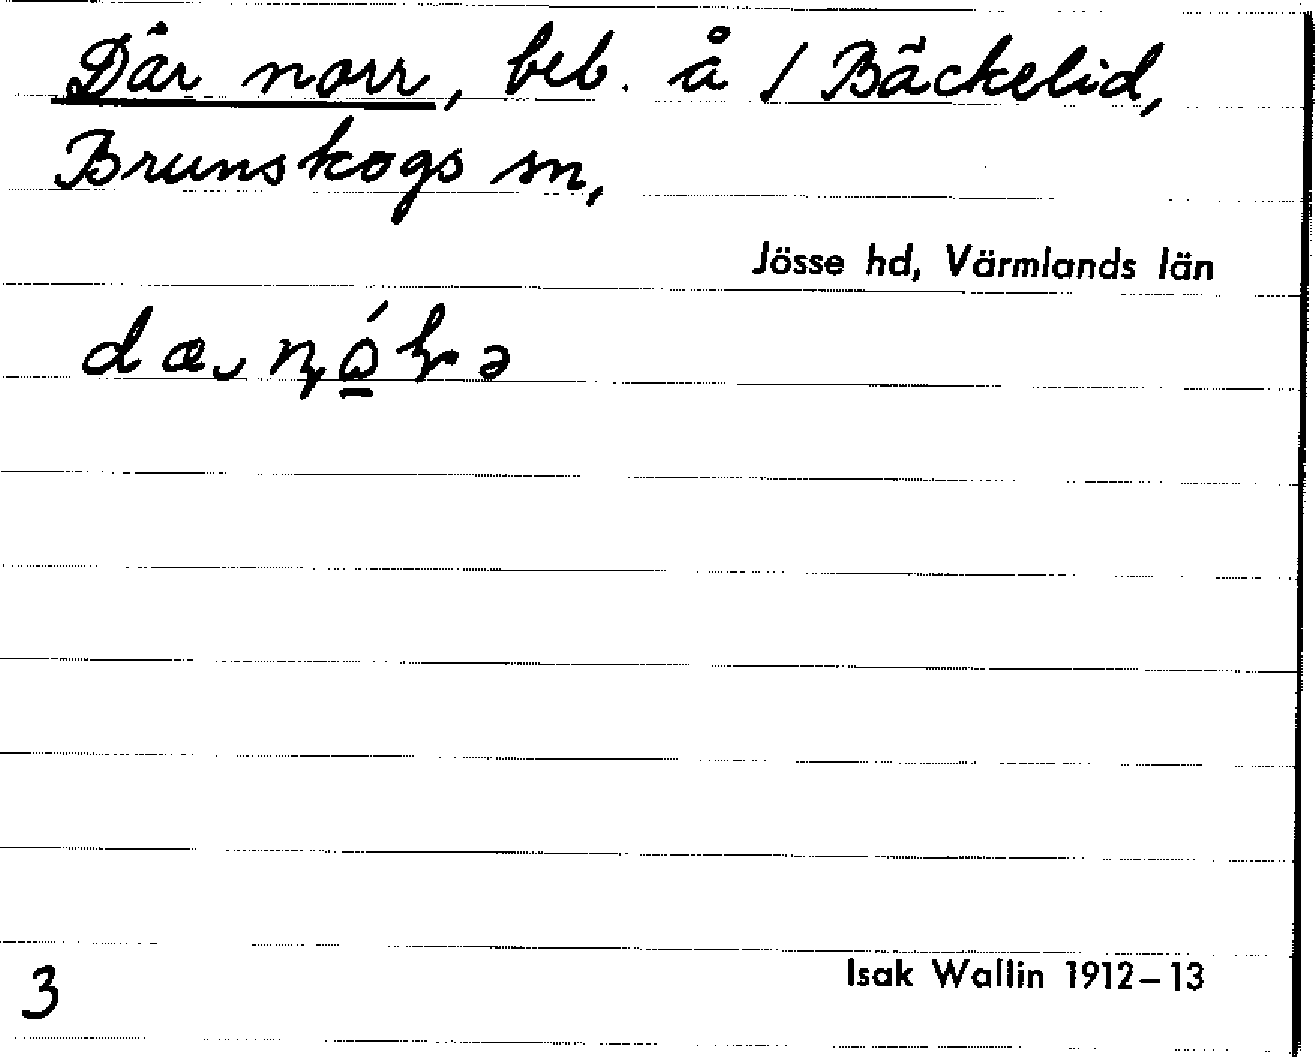 Där norr, beb. å 1 Bäckelid,
Brunskogs sn,
Jösse hd, Värmlands län
3
Isak Wallin 1912–13